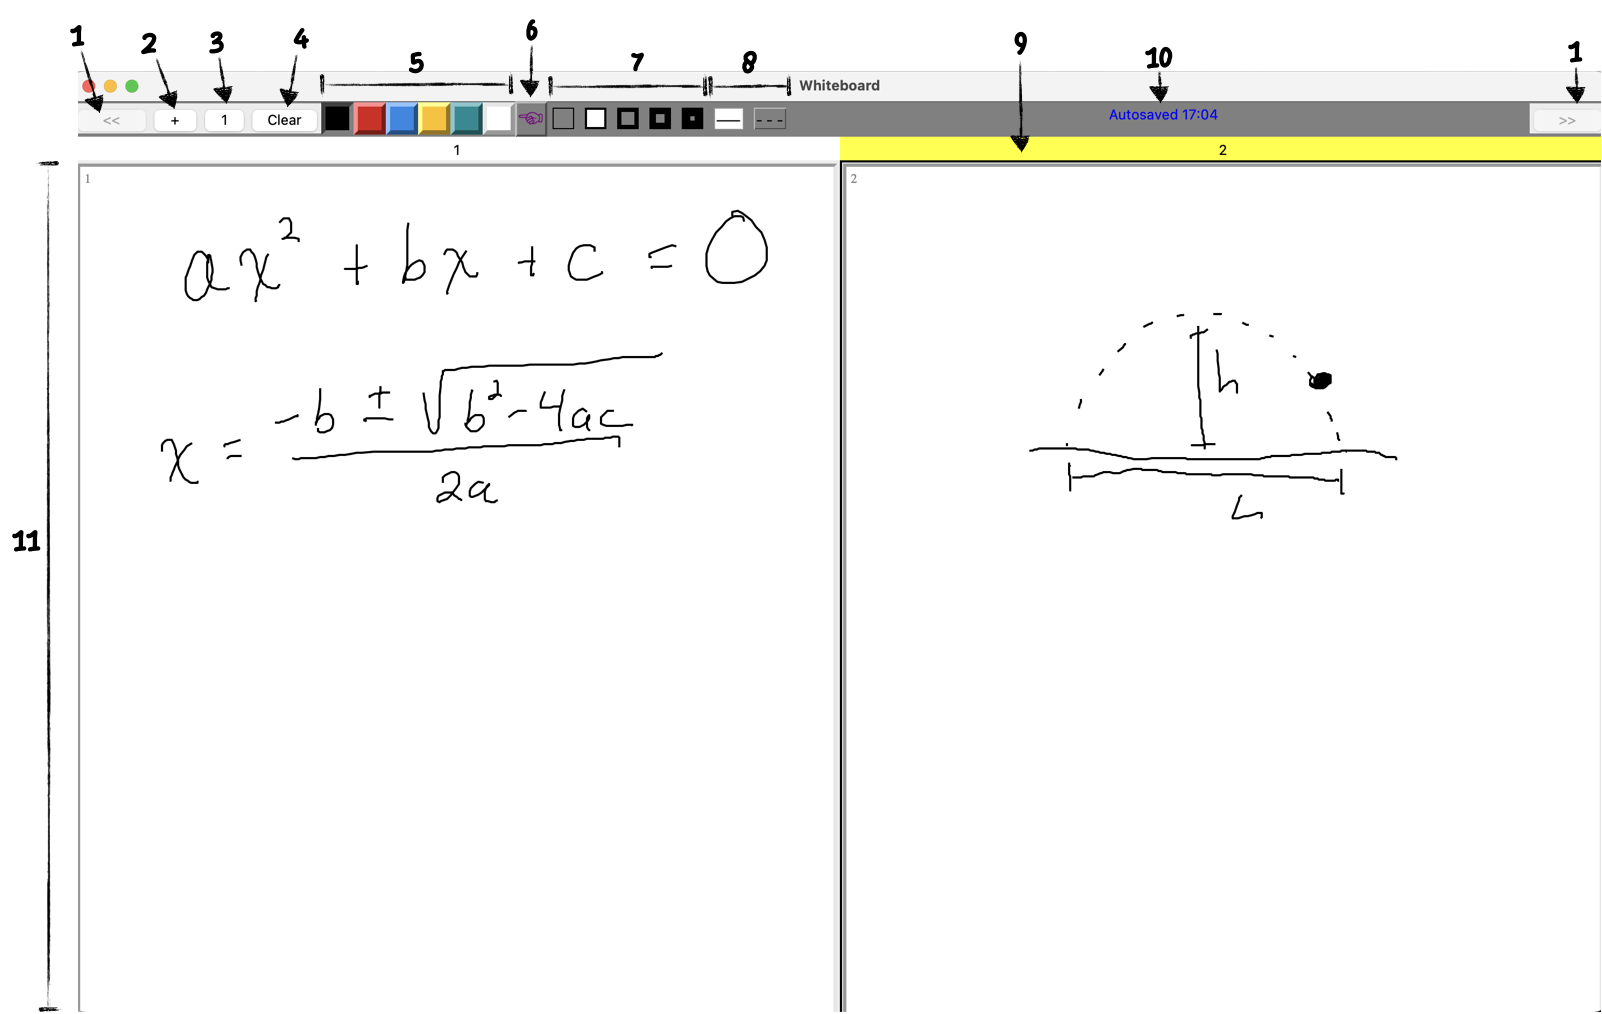 1 2 3 4 5 6 7 8 9 10 1
Whiteboard
<< + 1 Clear Autosaved 17:04 >>
1 2
1
ax² + bx + c = 0
x = -b ± √b²-4ac
2a
2
h
L
11